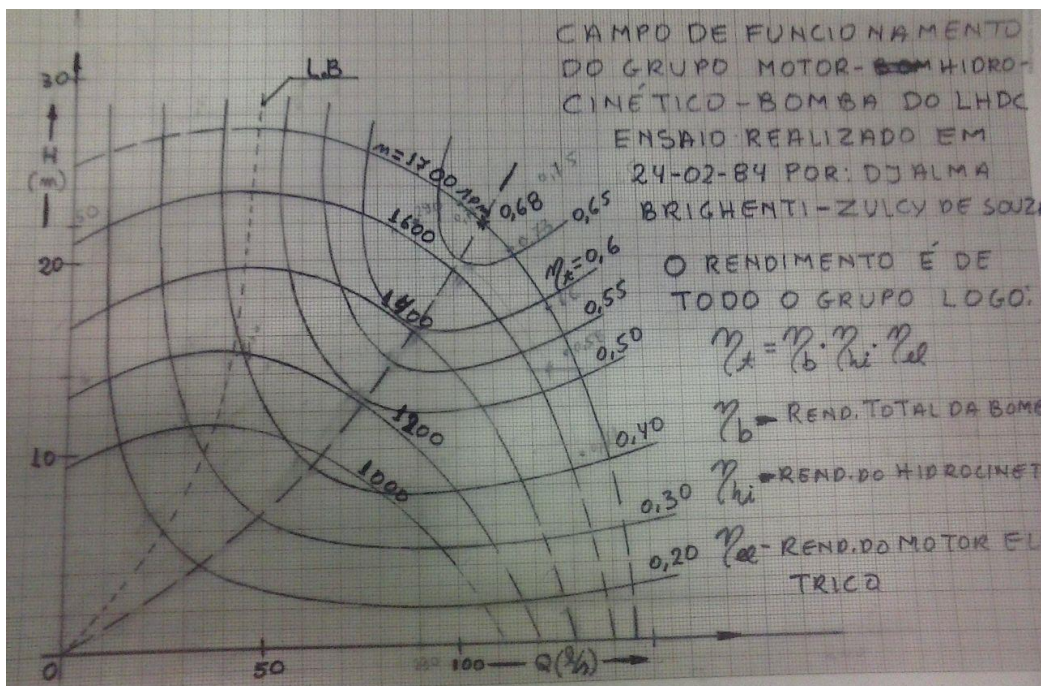 CAMPO DE FUNCIONAMENTO
DO GRUPO MOTOR-HIDRO-
CINÉTICO-BOMBA DO LHDC
ENSAIO REALIZADO EM
24-02-84 POR: DJALMA
BRIGHENTI-ZULCY DE SOUZA
O RENDIMENTO É DE
TODO O GRUPO LOGO:
ηt = ηb · ηhi · ηel
ηb - REND. TOTAL DA BOMB
ηhi - REND. DO HIDROCINET
ηel - REND. DO MOTOR EL
TRICO
L.B
30
H
(m)
20
10
0
50
100
Q(l/s)
n=1700 rpm
1600
1400
1200
1000
0,68
0,65
ηt=0,6
0,55
0,50
0,40
0,30
0,20